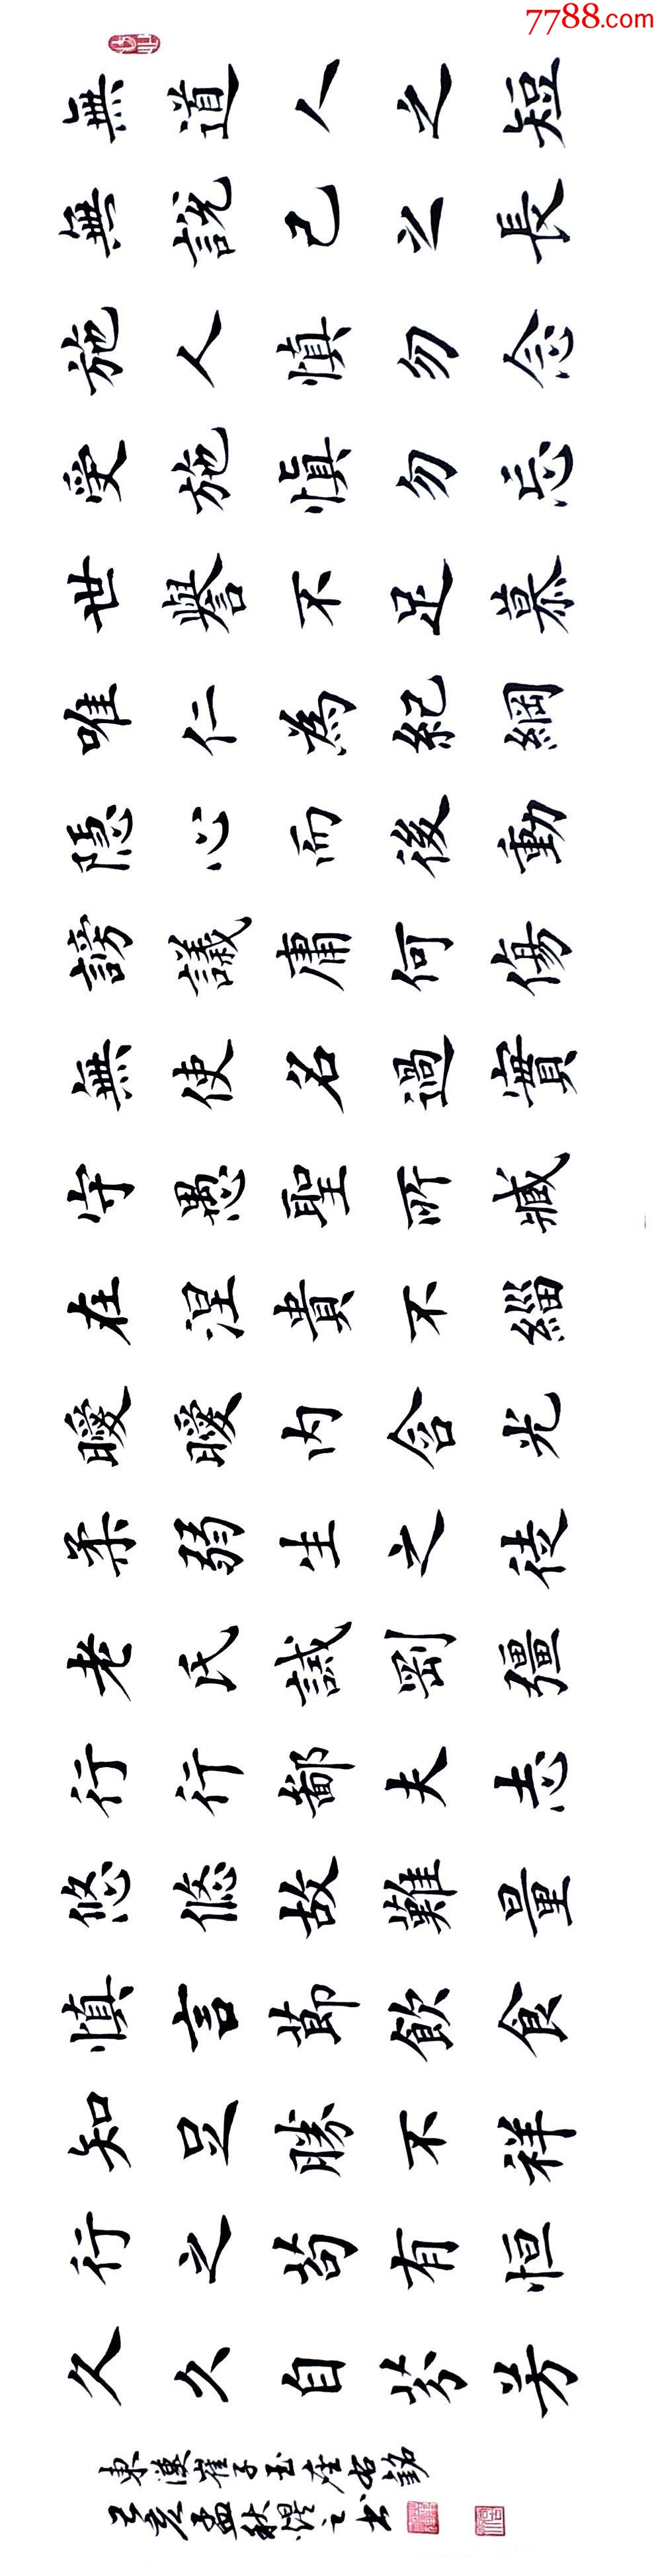 7788.com
無道人之短
無說己之長
施人慎勿念
受施慎勿忘
世譽不足慕
唯仁為紀綱
隱心而後動
謗議庸何傷
無使名過實
守愚聖所臧
在涅貴不緇
曖曖内含光
柔弱生之徒
老氏誡剛彊
行行鄙夫志
悠悠故難量
慎言節飲食
知足勝不祥
行之苟有恒
久久自芬芳
東漢崔子玉座右銘
己亥孟秋之書